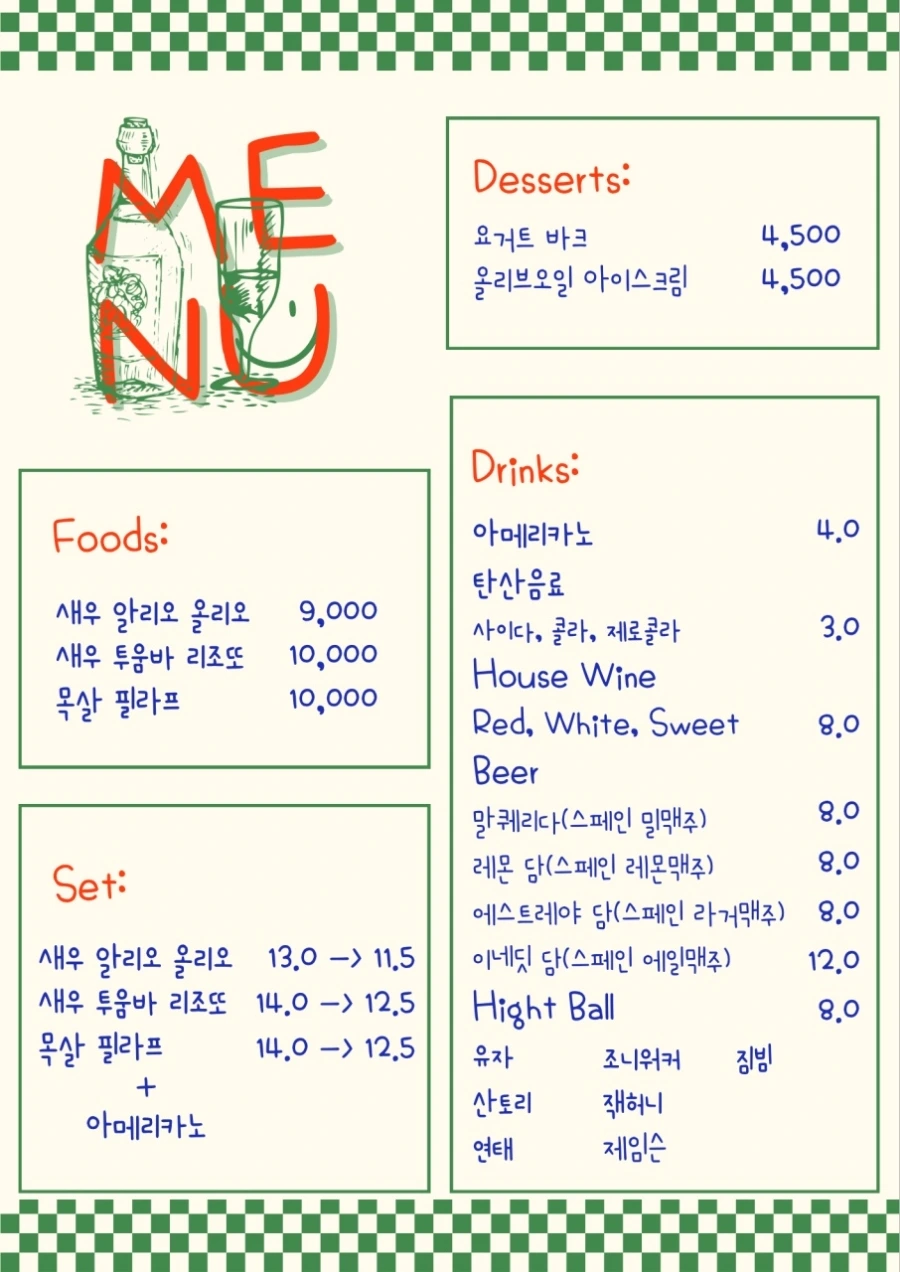 MENU
Desserts:
요거트 바크 4,500
올리브오일 아이스크림 4,500
Foods:
새우 알리오 올리오 9,000
새우 투움바 리조또 10,000
목살 필라프 10,000
Set:
새우 알리오 올리오 13.0 -> 11.5
새우 투움바 리조또 14.0 -> 12.5
목살 필라프 14.0 -> 12.5
+
아메리카노
Drinks:
아메리카노 4.0
탄산음료
사이다, 콜라, 제로콜라 3.0
House Wine
Red, White, Sweet 8.0
Beer
말퀘리다(스페인 밀맥주) 8.0
레몬 담(스페인 레몬맥주) 8.0
에스트레야 담(스페인 라거맥주) 8.0
이네딧 담(스페인 에일맥주) 12.0
Hight Ball 8.0
유자 조니워커 짐빔
산토리 잭허니
연태 제임슨